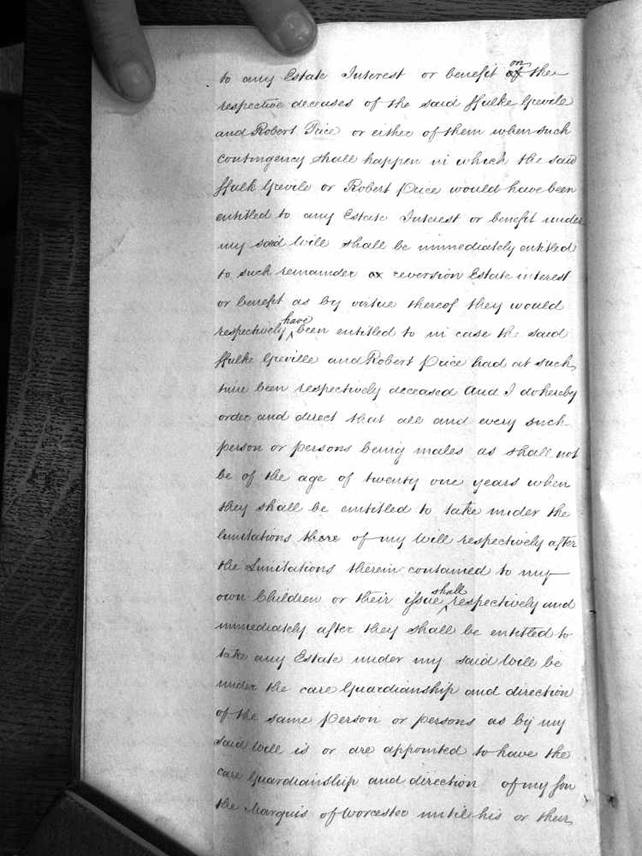 to any Estate Interest or benefit on of the
respective deceases of the said ffulke Grevile
and Robert Price or either of them when such
contingency shall happen in which the said
ffulk Grevile or Robert Price would have been
entitled to any Estate Interest or benefit under
my said Will shall be immediately entitled
to such remainder or reversion Estate interest
or benefit as by virtue thereof they would
respectively have been entitled to in case the said
ffulke Greville and Robert Price had at such
time been respectively deceased And I do hereby
order and direct that all and every such
person or persons being males as shall not
be of the age of twenty one years when
they shall be entitled to take under the
limitations there of my Will respectively after
the Limitations therein contained to my
own Children or their issue shall respectively and
immediately after they shall be entitled to
take any Estate under my said Will be
under the care Guardianship and direction
of the same person or persons as by my
said Will is or are appointed to have the
care Guardianship and direction of my son
the Marquis of Worcester until his or their